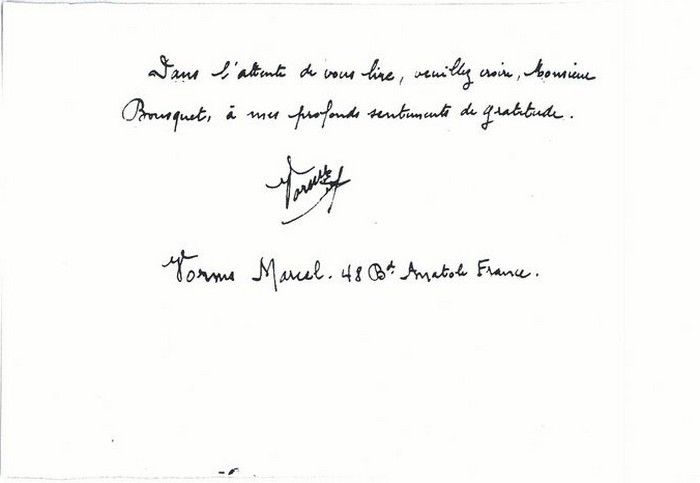 Dans l'attente de vous lire, veuillez croire, Monsieur
Bousquet, à mes profonds sentiments de gratitude.
Worms
Worms Marcel. 48 Bd Anatole France.